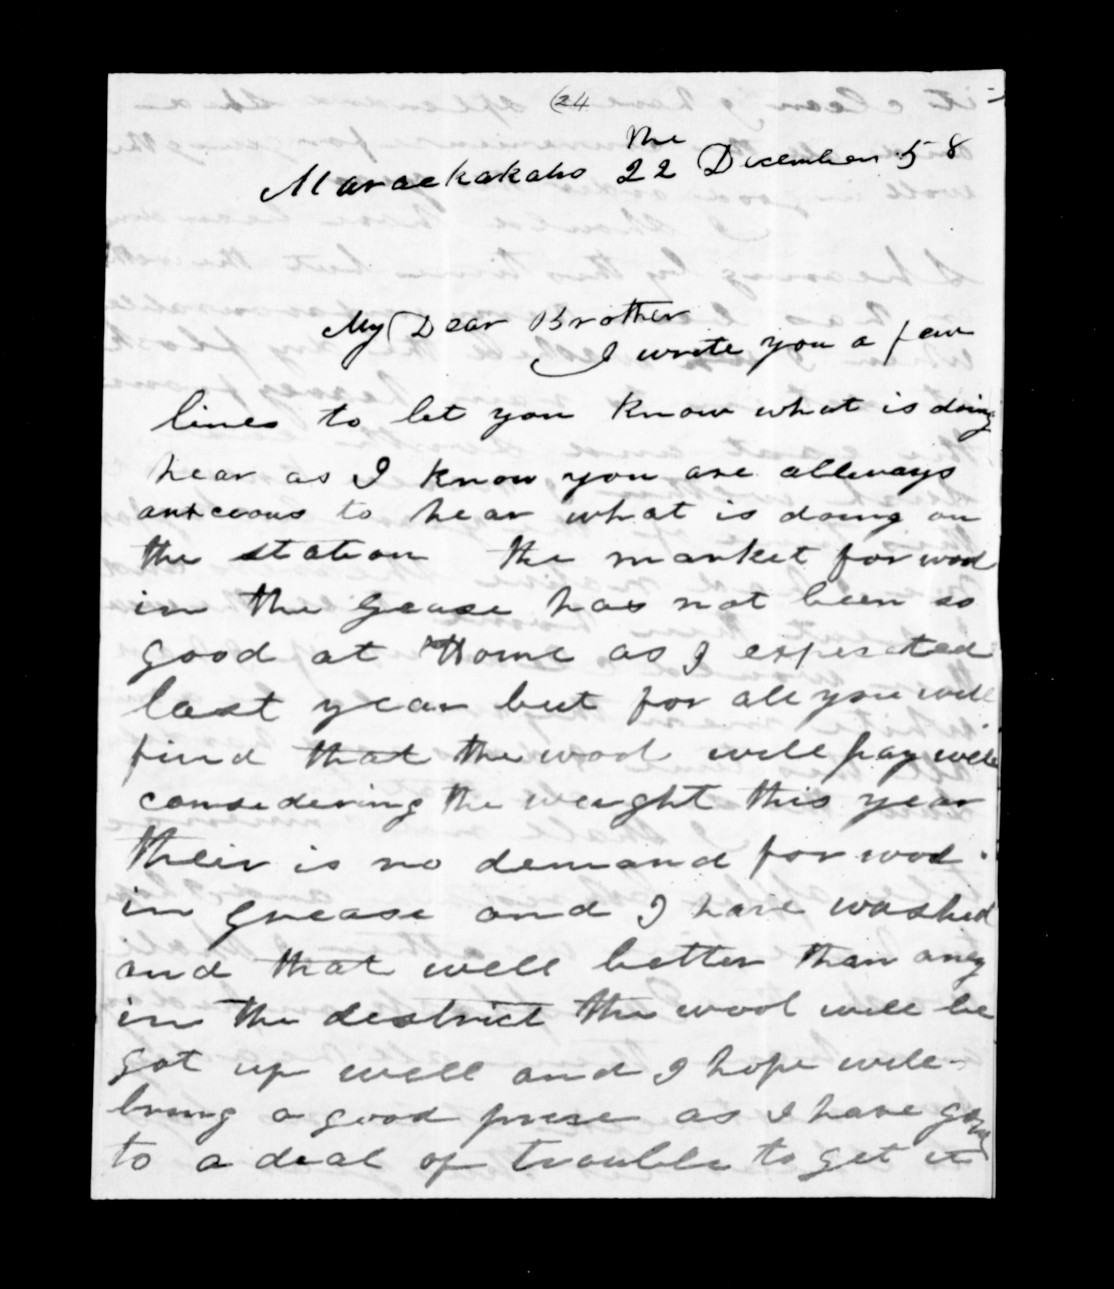 (24
Maraekakaho the 22 December 58
My Dear Brother
I write you a few
lines to let you know what is doing
hear as I know you are allways
anxceous to hear what is doing on
the station the market for wool
in the Grease has not been so
good at Home as I expected
last year but for all you will
find that the wool will pay well
considering the weight this year
their is no demand for wool
in grease and I have washed
and that well better than any
in the destrict the wool will be
got up well and I hope will
bring a good prise as I have gone
to a deal of trouble to get it